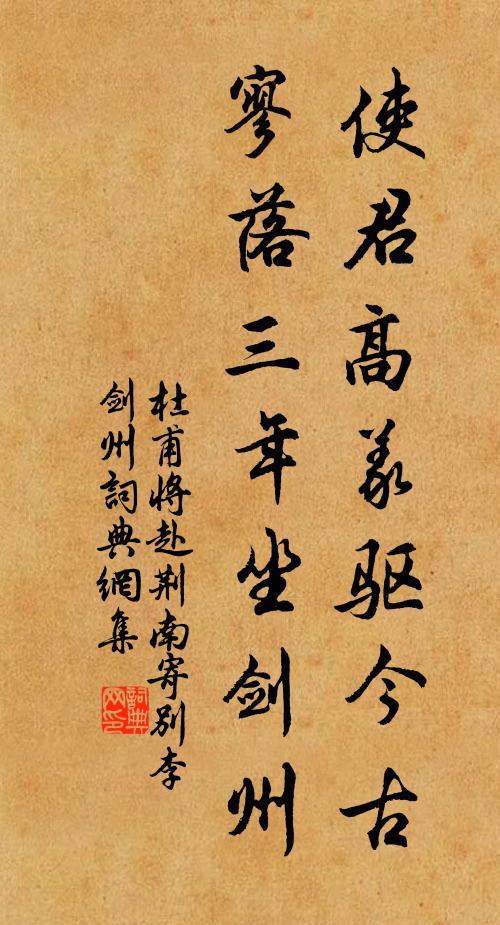 使君高義驱今古
寥落三年坐剑州
杜甫将赴荆南寄别李
剑州詞典網集
詞典
网印